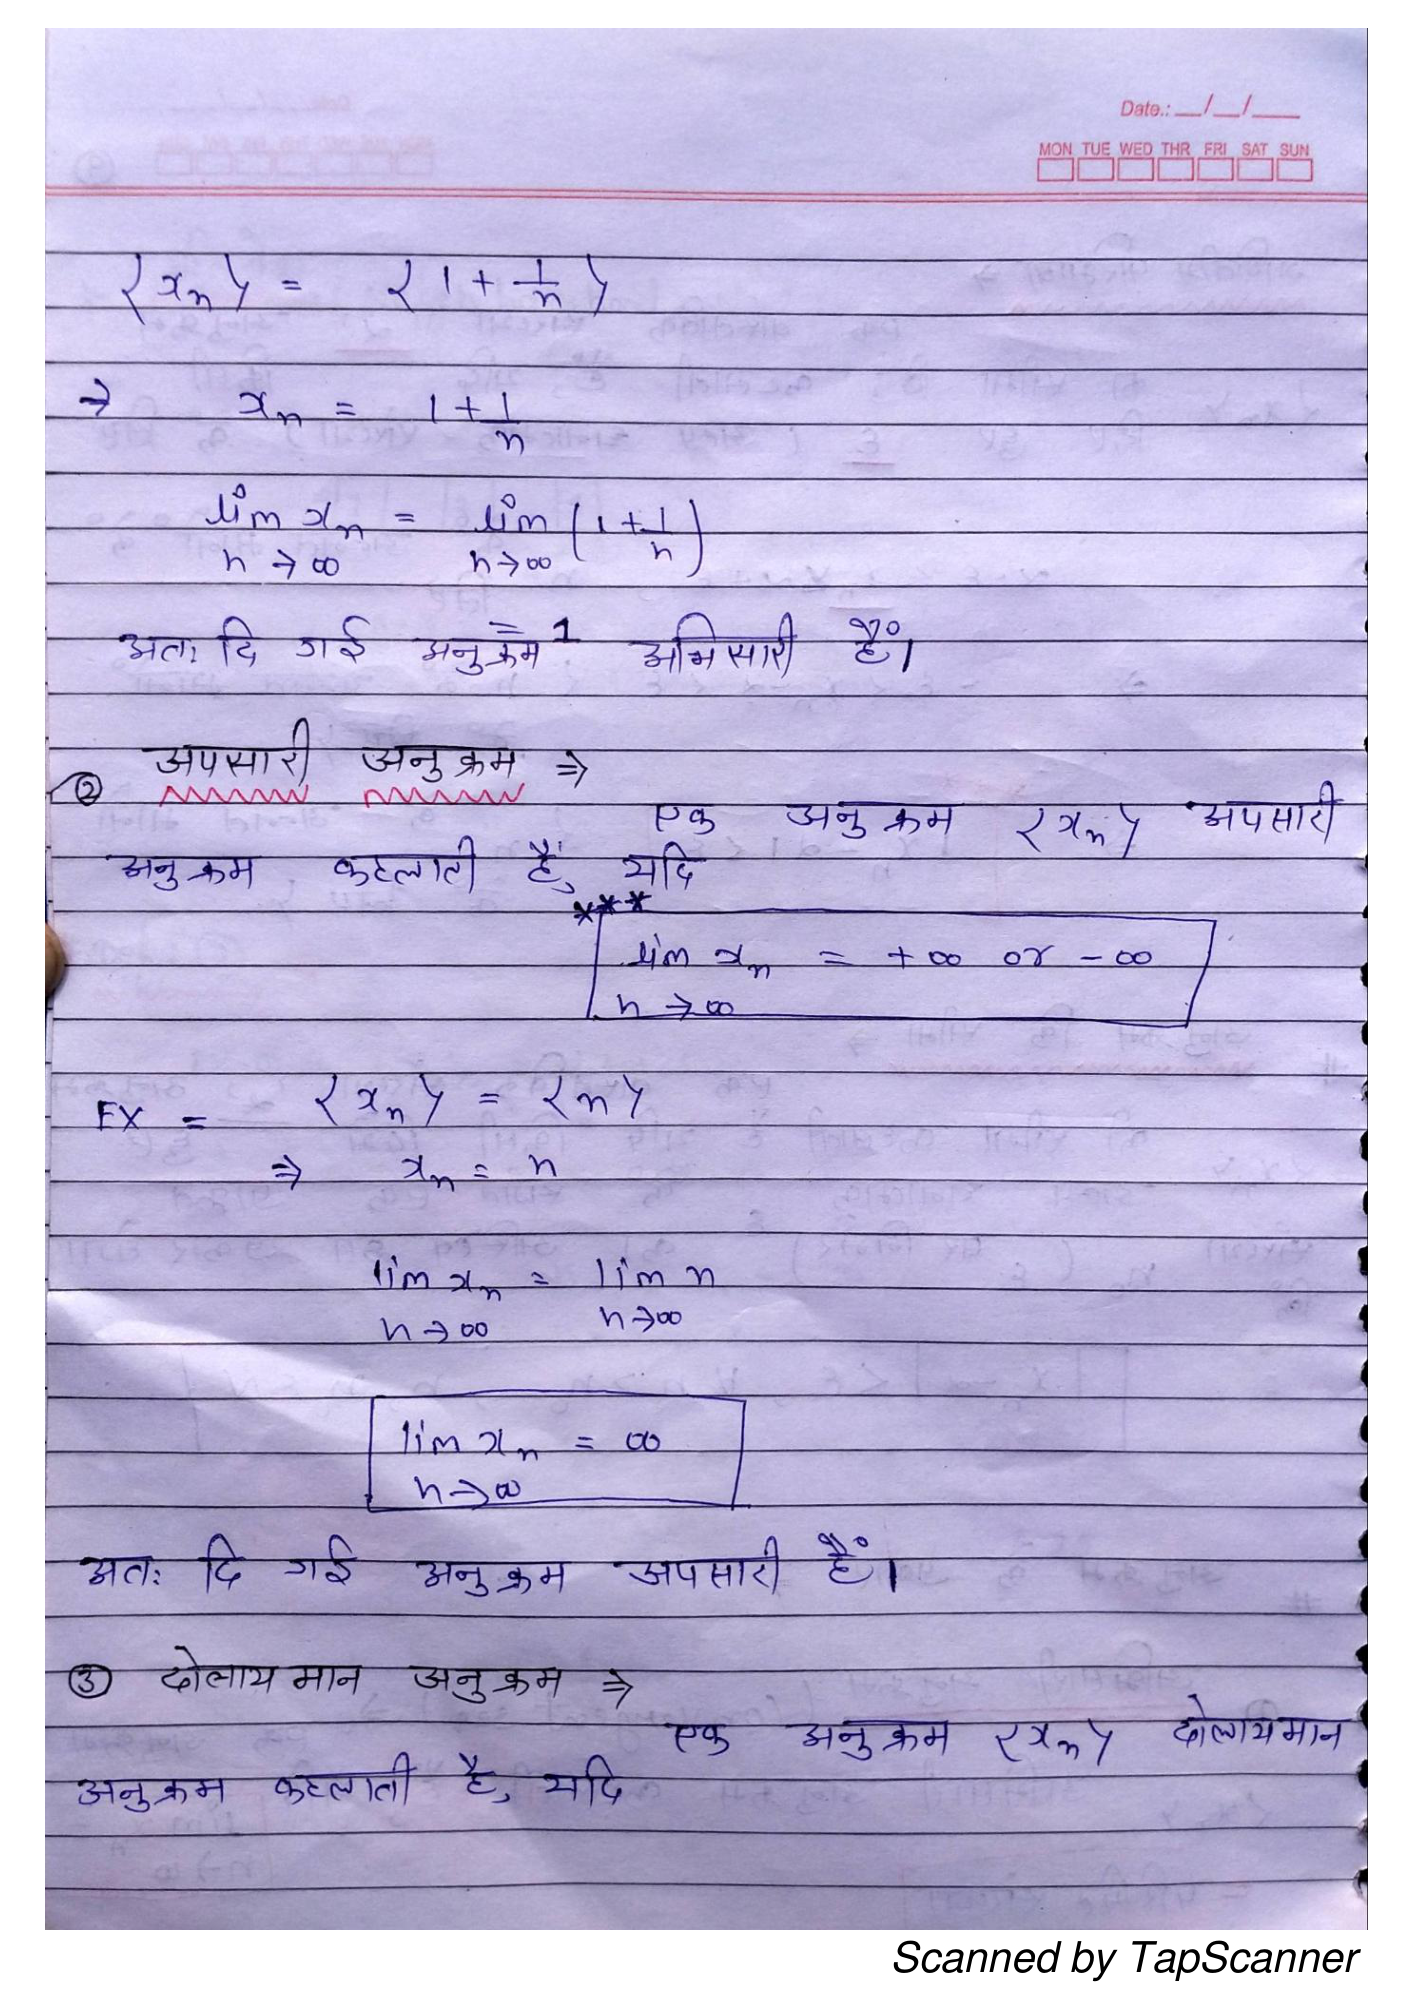 Date.: __/__/____
MON TUE WED THR FRI SAT SUN
⟨xₙ⟩ = ⟨1 + 1/n⟩
→ xₙ = 1 + 1/n
lim xₙ = lim (1 + 1/n)
n→∞ n→∞
= 1
अतः दि गई अनुक्रम अभिसारी हैं।
② अपसारी अनुक्रम ⇒
एक अनुक्रम ⟨xₙ⟩ अपसारी
अनुक्रम कहलाती हैं, यदि
***
lim xₙ = +∞ or -∞
n→∞
EX = ⟨xₙ⟩ = ⟨n⟩
⇒ xₙ = n
lim xₙ = lim n
n→∞ n→∞
lim xₙ = ∞
n→∞
अतः दि गई अनुक्रम अपसारी हैं।
③ दोलायमान अनुक्रम ⇒
एक अनुक्रम ⟨xₙ⟩ दोलायमान
अनुक्रम कहलाती है, यदि
Scanned by TapScanner